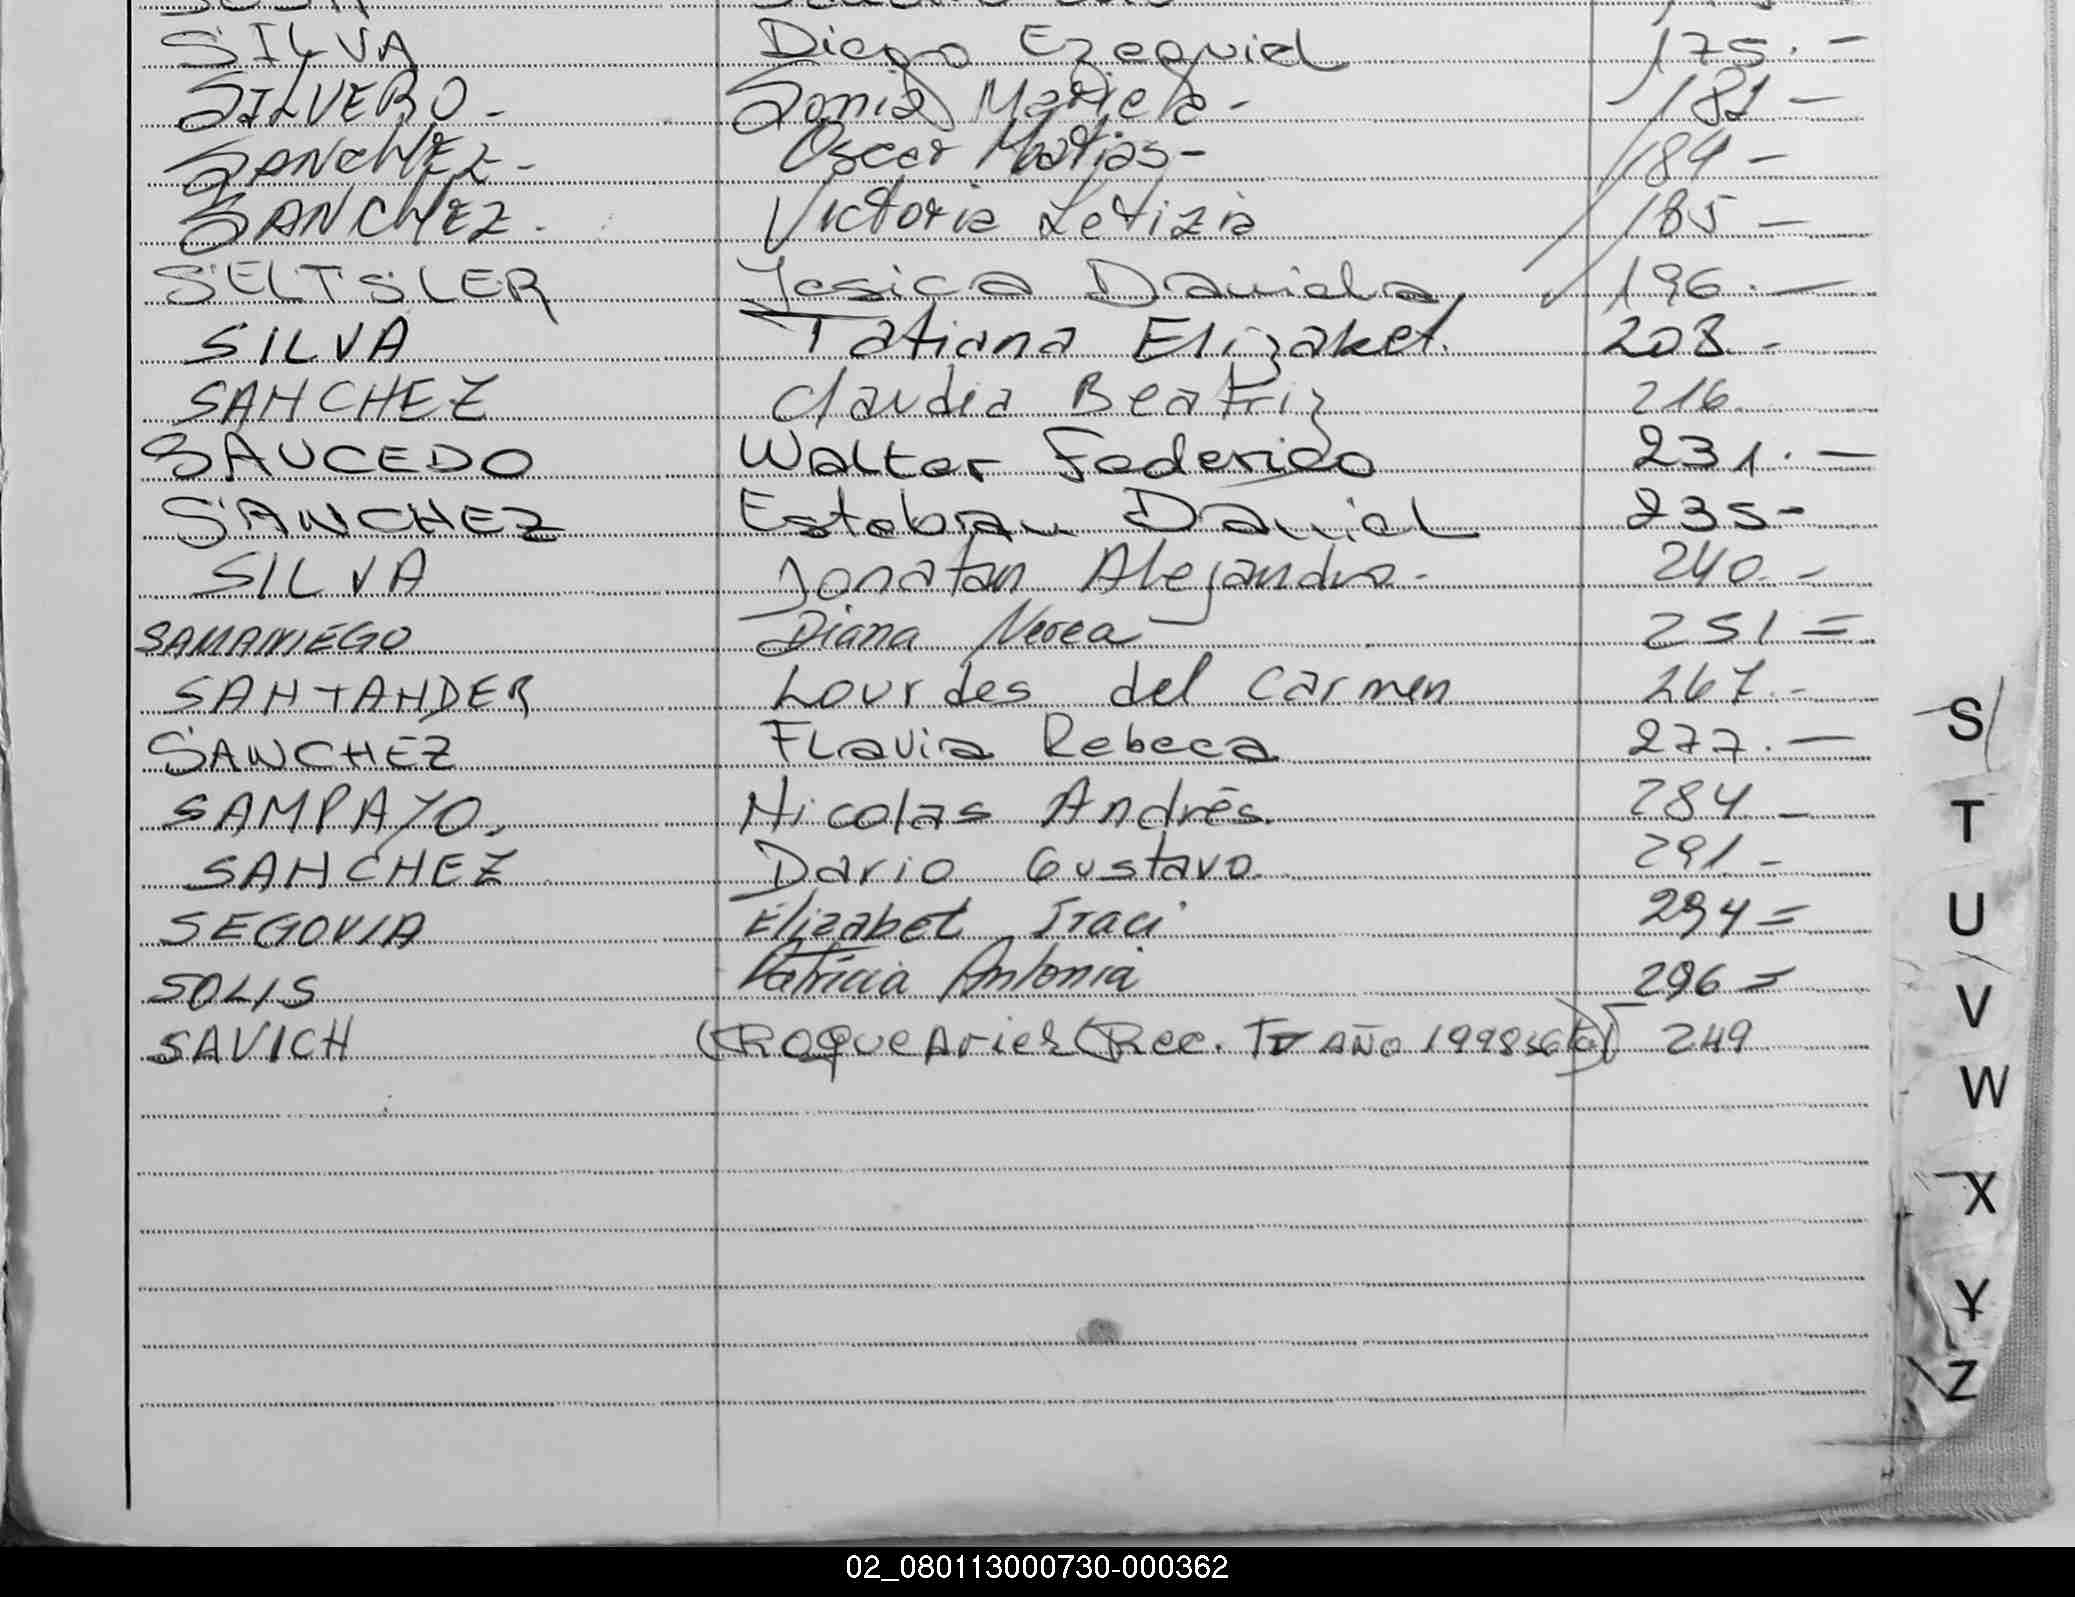 SILVA Diego Ezequiel 175.-
SILVERO- Sonia Mariela- 181-
SANCHEZ- Oscar Matias- 184-
SANCHEZ. Victoria Letizia 185-
SELTSLER Jesica Daniela 196.-
SILVA Tatiana Elizabet. 208-
SANCHEZ Claudia Beatriz 216
SAUCEDO Walter Federico 231.-
SANCHEZ Esteban Daniel 235-
SILVA Jonatan Alejandro- 240.-
SAMANIEGO Diana Nerea 251=
SANTANDER Lourdes del Carmen 267.-
SANCHEZ Flavia Rebeca 277.-
S
SAMPAYO. Nicolas Andrés. 284-
T
SANCHEZ Dario Gustavo. 291-
SEGOVIA Elizabet Iraci 294=
U
SOLIS Patricia Antonia 296=
V
SAVICH (Roque Ariel (Rec. Tº AÑO 1998 249
W
X
Y
Z
02_080113000730-000362